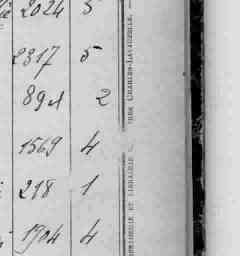 2024 5
2317 5
891 2
1569 4
218 1
1904 4
IMPRIMERIE ET LIBRAIRIE
CHARLES-LAVAUZELLE.